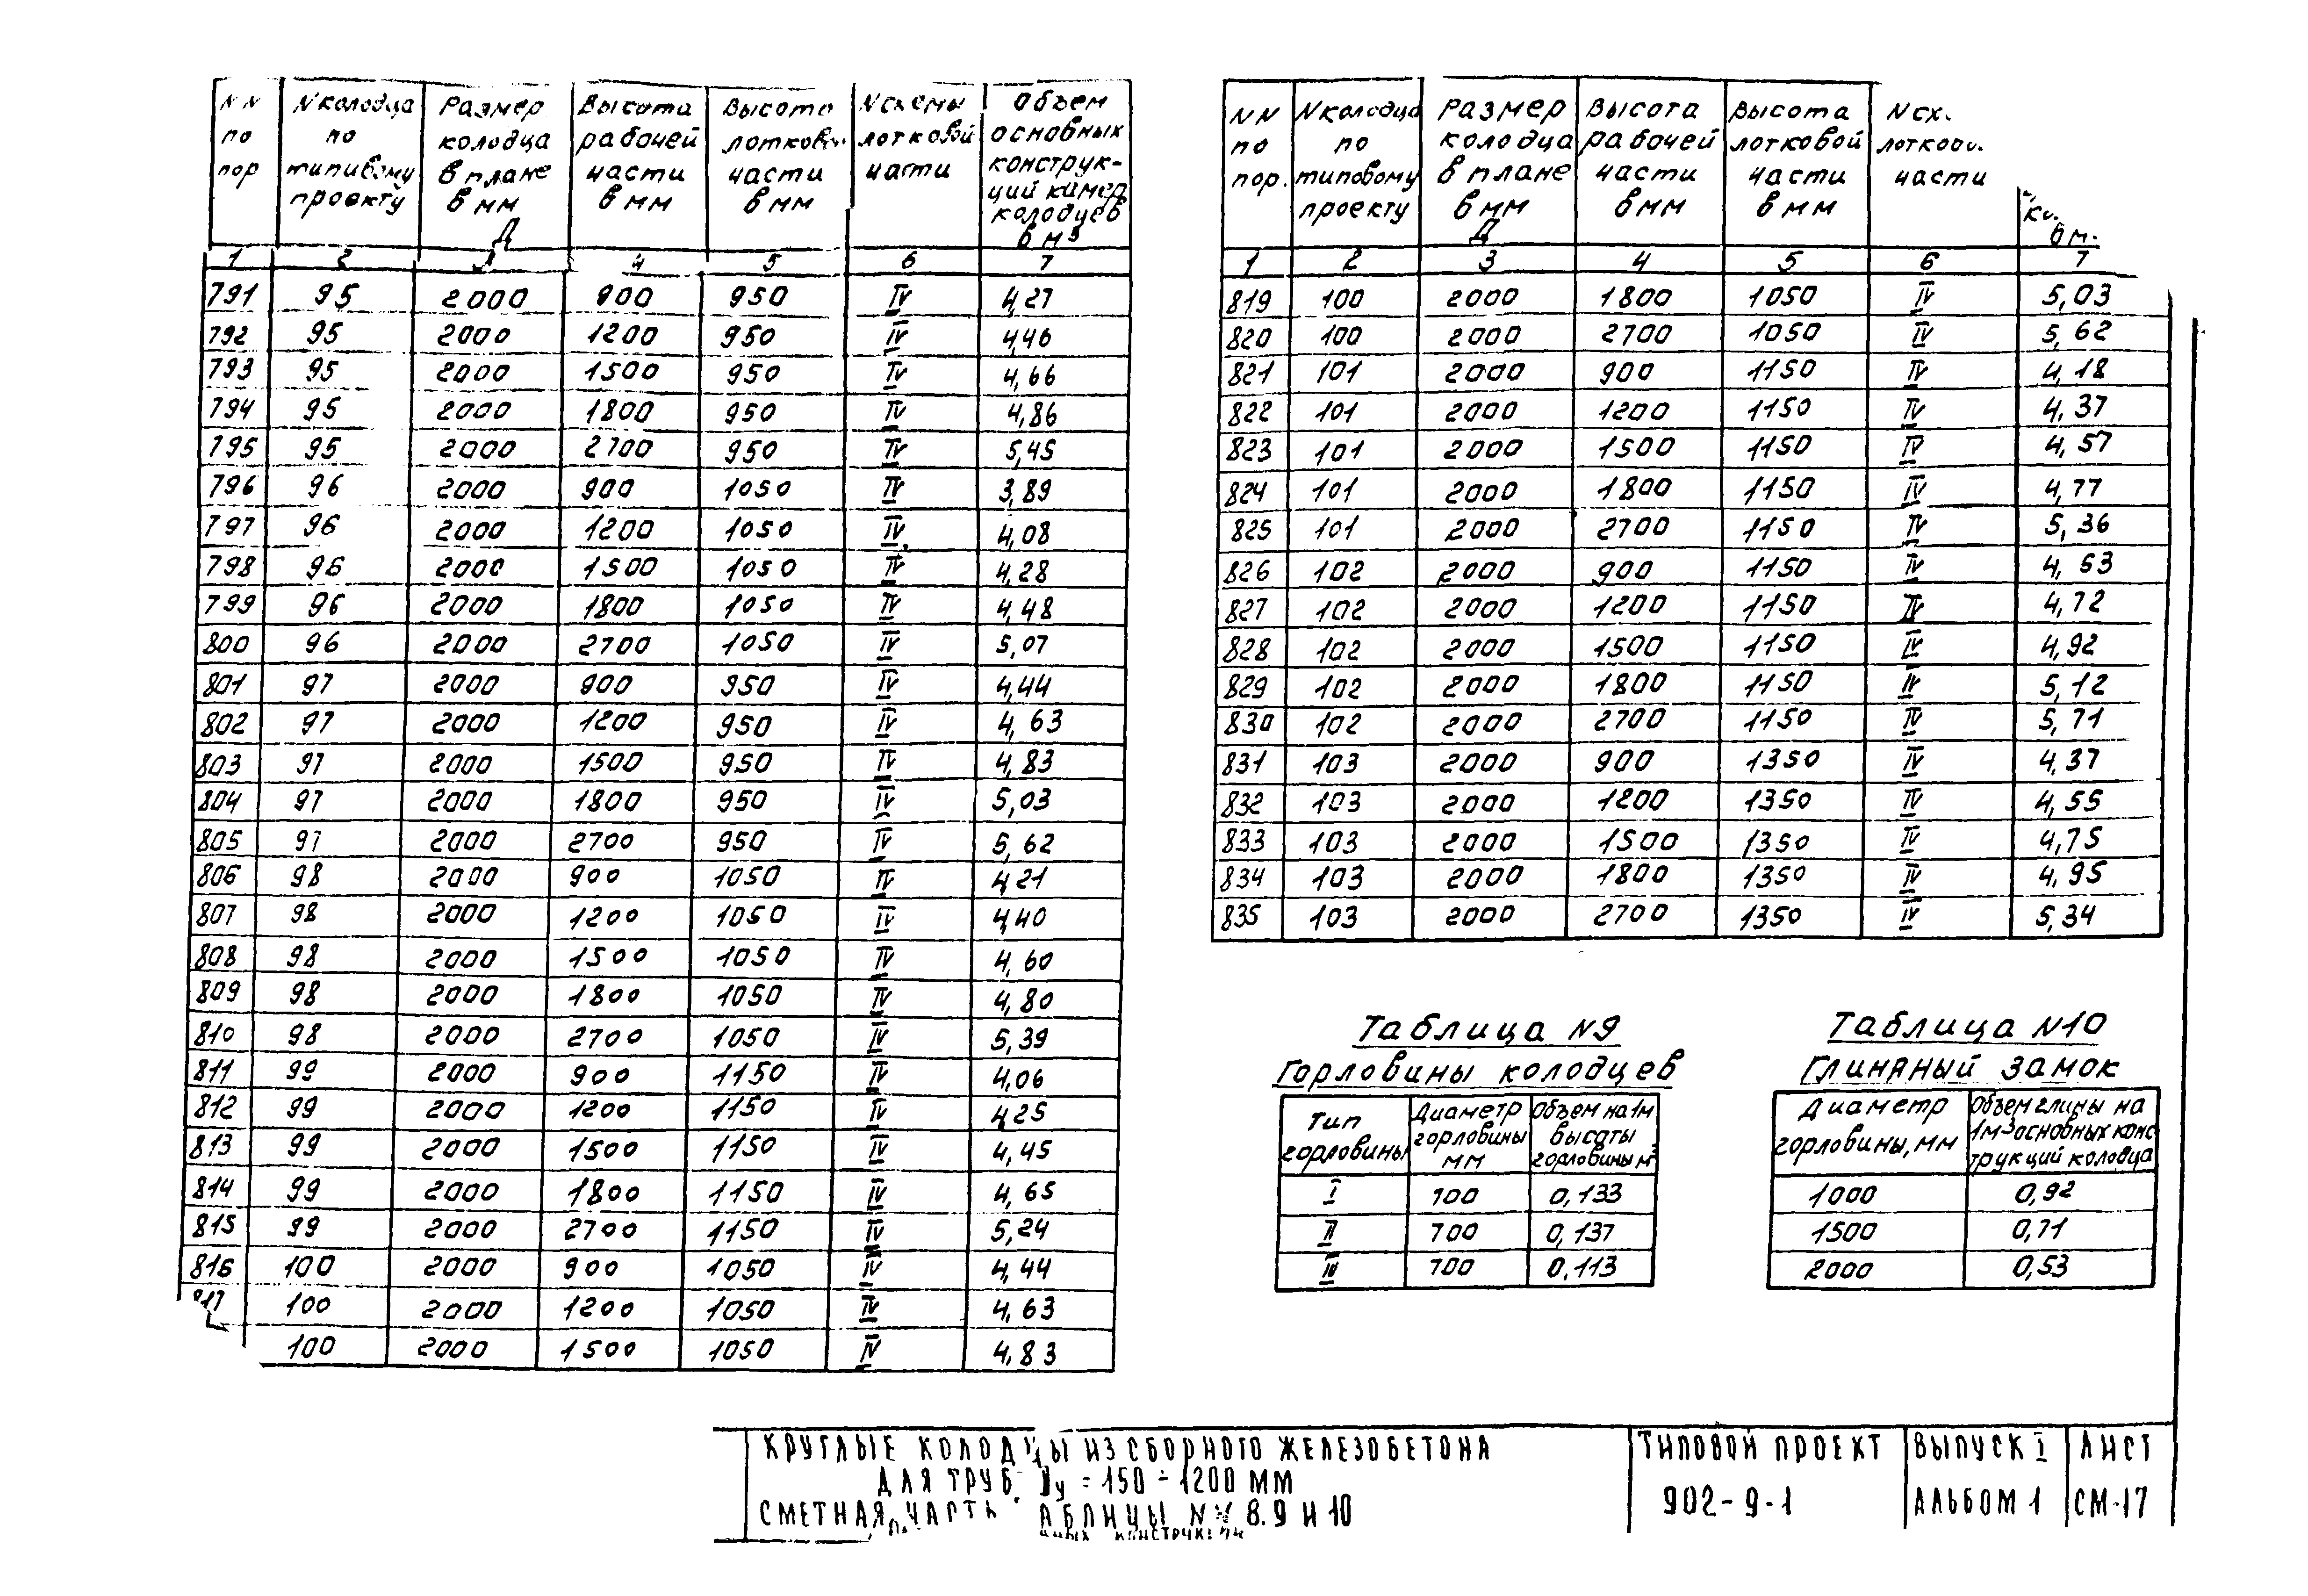 NN по пор | N колодца по типивому проекту | Размер колодца в плане в мм Д | Высота рабочей части в мм | Высота лотков части в мм | N схемы лотковой части | Объем основных конструк- ций камер колодцев в м³
1 2 3 4 5 6 7
791 95 2000 900 950 IV 4,27
792 95 2000 1200 950 IV 4,46
793 95 2000 1500 950 IV 4,66
794 95 2000 1800 950 IV 4,86
795 95 2000 2700 950 IV 5,45
796 96 2000 900 1050 IV 3,89
797 96 2000 1200 1050 IV 4,08
798 96 2000 1500 1050 IV 4,28
799 96 2000 1800 1050 IV 4,48
800 96 2000 2700 1050 IV 5,07
801 97 2000 900 950 IV 4,44
802 97 2000 1200 950 IV 4,63
803 97 2000 1500 950 IV 4,83
804 97 2000 1800 950 IV 5,03
805 97 2000 2700 950 IV 5,62
806 98 2000 900 1050 IV 4,21
807 98 2000 1200 1050 IV 4,40
808 98 2000 1500 1050 IV 4,60
809 98 2000 1800 1050 IV 4,80
810 98 2000 2700 1050 IV 5,39
811 99 2000 900 1150 IV 4,06
812 99 2000 1200 1150 IV 4,25
813 99 2000 1500 1150 IV 4,45
814 99 2000 1800 1150 IV 4,65
815 99 2000 2700 1150 IV 5,24
816 100 2000 900 1050 IV 4,44
817 100 2000 1200 1050 IV 4,63
100 2000 1500 1050 IV 4,83
NN по пор. | N колодца по типовому проекту | Размер колодца в плане в мм Д | Высота рабочей части в мм | Высота лотковой части в мм | N сх. лотков. части
1 2 3 4 5 6 7
819 100 2000 1800 1050 IV 5,03
820 100 2000 2700 1050 IV 5,62
821 101 2000 900 1150 IV 4,18
822 101 2000 1200 1150 IV 4,37
823 101 2000 1500 1150 IV 4,57
824 101 2000 1800 1150 IV 4,77
825 101 2000 2700 1150 IV 5,36
826 102 2000 900 1150 IV 4,53
827 102 2000 1200 1150 IV 4,72
828 102 2000 1500 1150 IV 4,92
829 102 2000 1800 1150 IV 5,12
830 102 2000 2700 1150 IV 5,71
831 103 2000 900 1350 IV 4,37
832 103 2000 1200 1350 IV 4,55
833 103 2000 1500 1350 IV 4,75
834 103 2000 1800 1350 IV 4,95
835 103 2000 2700 1350 IV 5,34
Таблица N9
Горловины колодцев
Тип горловины | Диаметр горловины мм | Объем на 1м высоты горловины м³
I 700 0,133
II 700 0,137
III 700 0,113
Таблица N10
Глиняный замок
Диаметр горловины, мм | Объем глины на 1м³ основных конс трукций колодца
1000 0,92
1500 0,71
2000 0,53
КРУГЛЫЕ КОЛОДЦЫ ИЗ СБОРНОГО ЖЕЛЕЗОБЕТОНА
ДЛЯ ТРУБ Ду = 150 ÷ 1200 ММ
СМЕТНАЯ ЧАСТЬ. АБЛИЦЫ NN 8.9 И 10
ТИПОВОЙ ПРОЕКТ
902-9-1
ВЫПУСК I
АЛЬБОМ 1
ЛИСТ
СМ-17